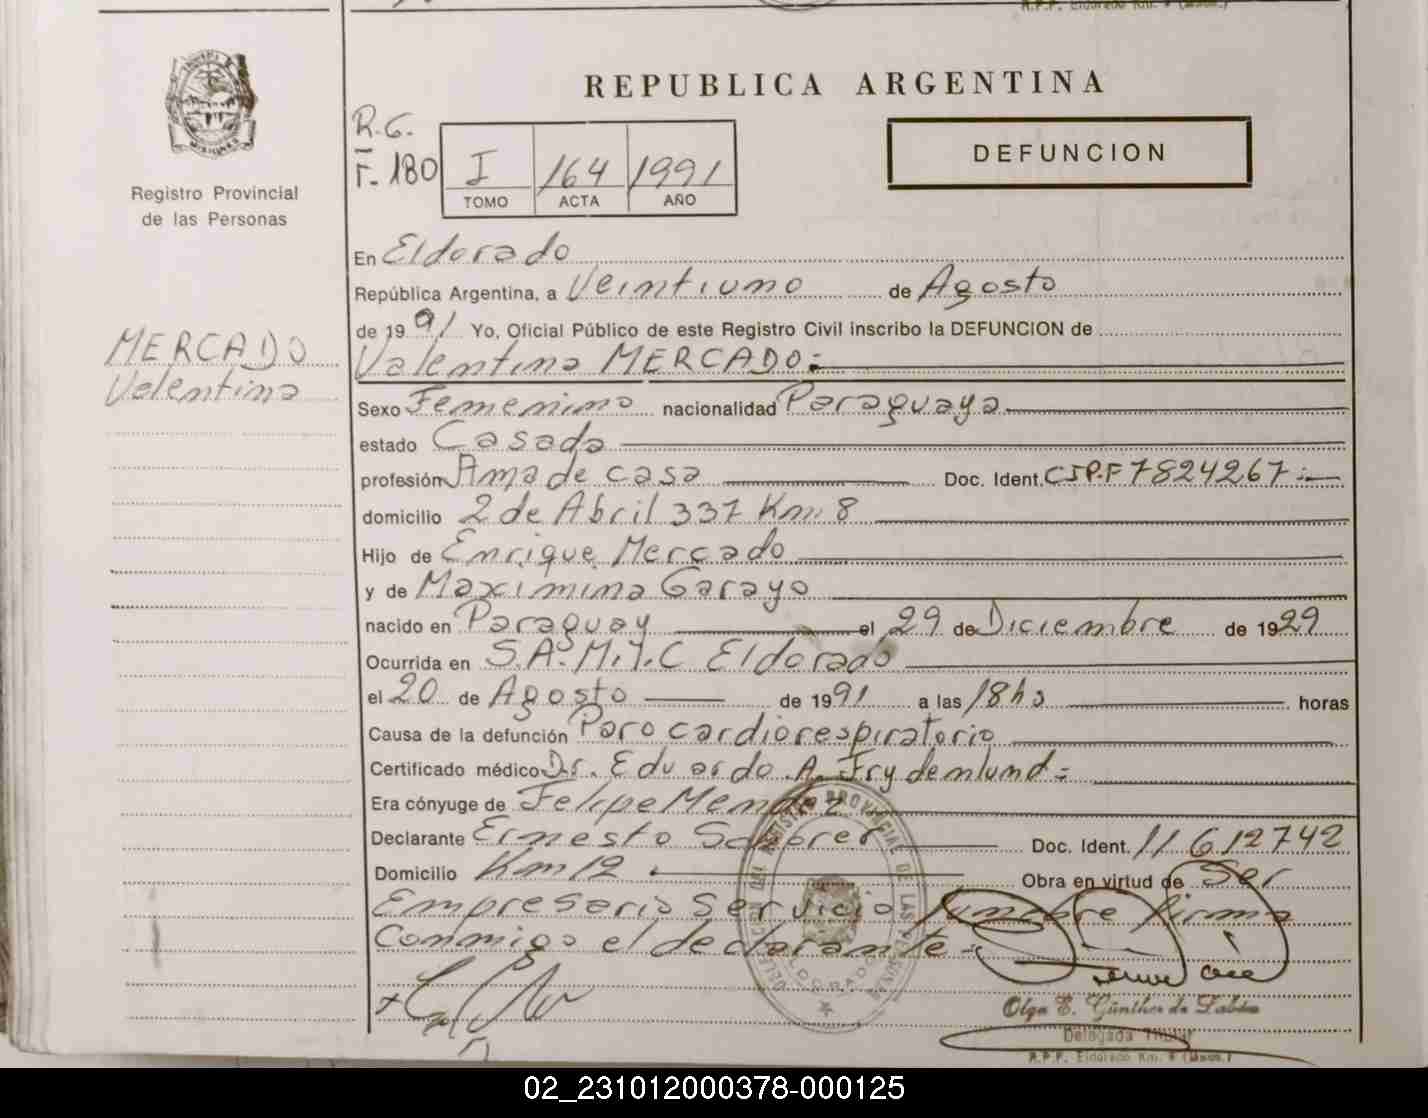 REPUBLICA ARGENTINA
Registro Provincial
de las Personas
R.G.
F. 180
I 164 1991
TOMO ACTA AÑO
DEFUNCION
MERCADO
Valentina
En Eldorado
República Argentina, a Veintiuno de Agosto
de 1991 Yo, Oficial Público de este Registro Civil inscribo la DEFUNCION de
Valentina MERCADO:
Sexo Femenino nacionalidad Paraguaya
estado Casada
profesión Ama de casa Doc. Ident. C.I.P.F 7824267:
domicilio 2 de Abril 337 Km 8
Hijo de Enrique Mercado
y de Maximina Garayo
nacido en Paraguay el 29 de Diciembre de 1929
Ocurrida en S.A.M.I.C Eldorado
el 20 de Agosto de 1991 a las 18hs horas
Causa de la defunción Paro cardiorespiratorio
Certificado médico Dr. Eduardo A. Frydemlund=
Era cónyuge de Felipe Mendez
Declarante Ernesto Doc. Ident. 11612742
Domicilio Km 12 Obra en virtud de Ser
Empresario Servicio funebre firma
Conmigo el declarante.
Olga E. Günther de
Delegada Titular
R.P.P. Eldorado Km. 9 (Mnes.)
02_231012000378-000125